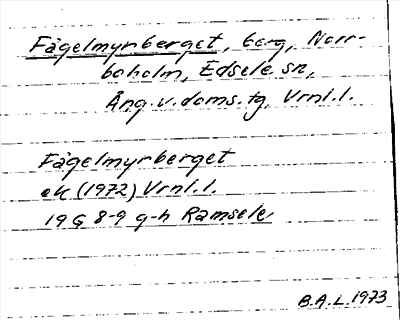 Fågelmyrberget, berg, Norr-
boholm, Edsele sn,
Ång.v.doms.tg. Vrnl.l.
Fågelmyrberget
ek (1972) Vrnl.l.
19 G 8-9 g-h Ramsele.
B.A.L. 1973